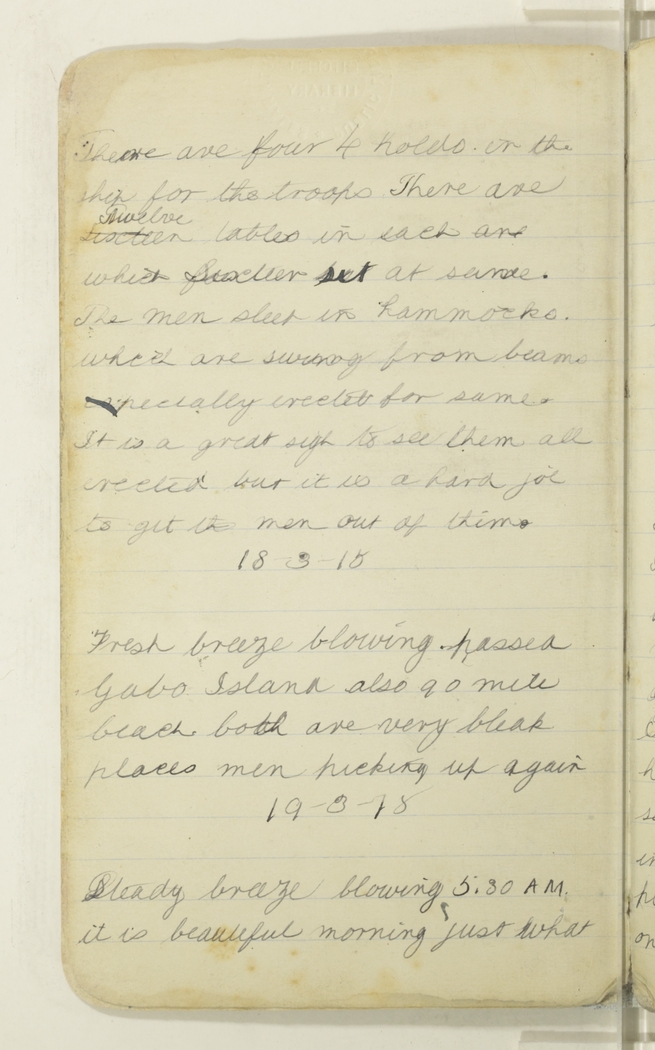 There are four 4 holds in the
ship for the troops There are
Twelve
Sixteen tables in each are
which set at same.
The men sleep in hammocks.
which are swung from beams
especially erected for same.
It is a great sigh to see them all
erected but it is a hard job
to get the men out of them.
18-3-18
Fresh breeze blowing. passed
Gabo Island also 90 mile
beach both are very bleak
places men picking up again
19-3-18
Steady breeze blowing 5.30 A M.
it is beautiful morning just what